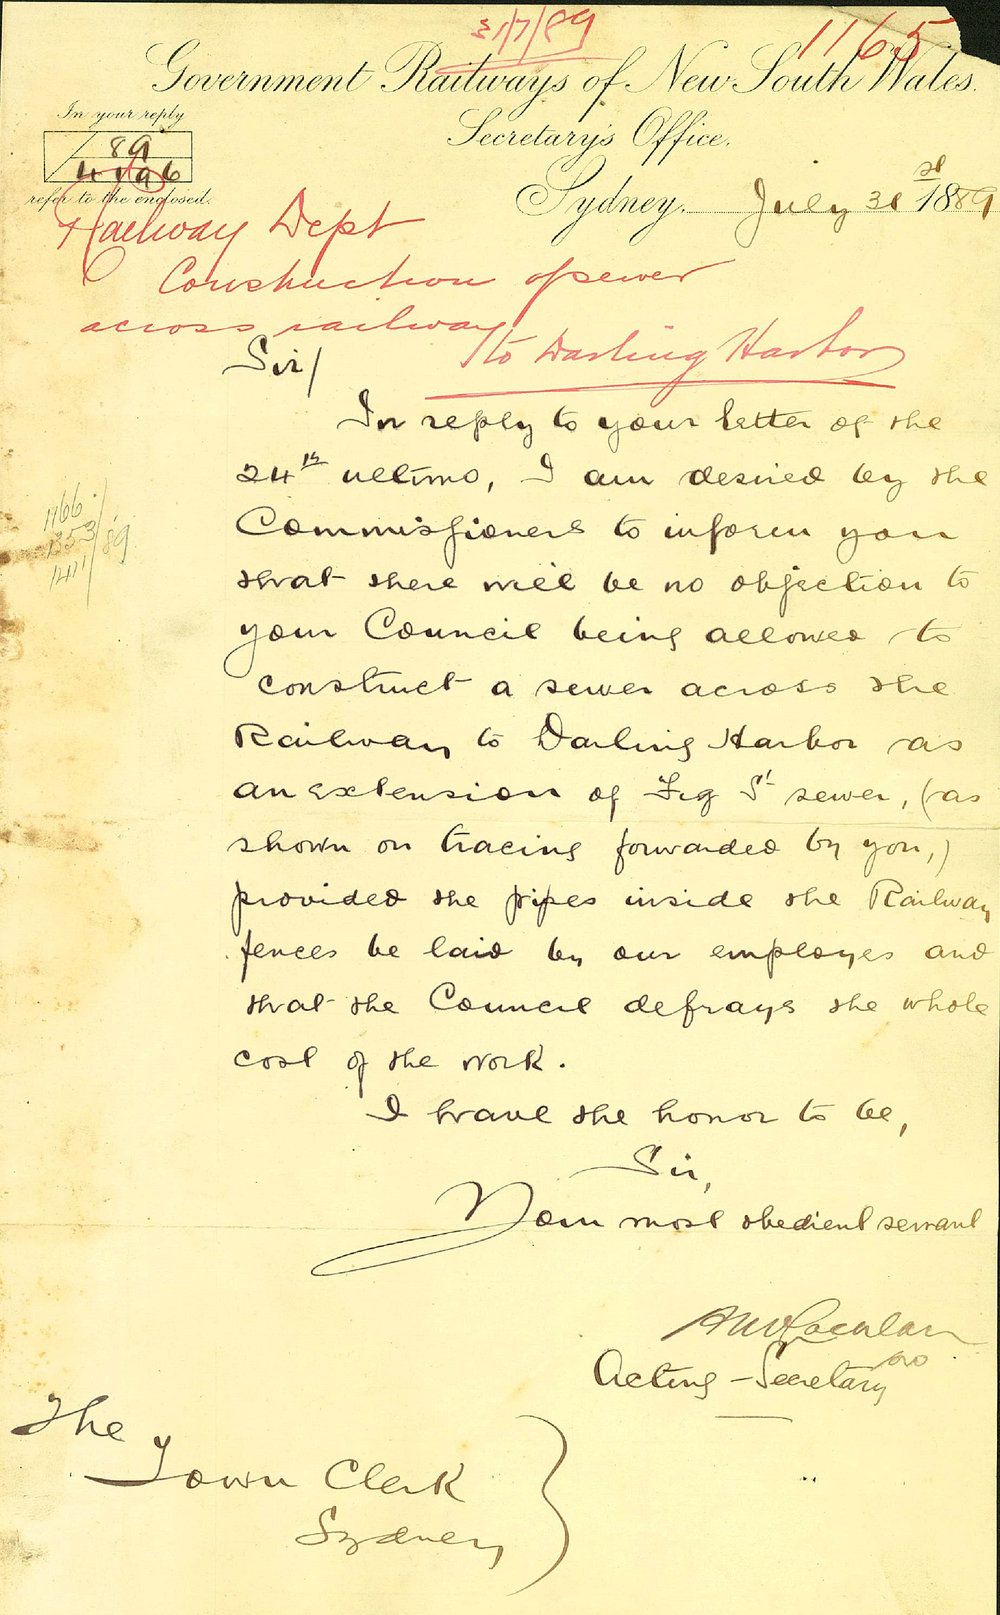 31/7/89
1165
Government Railways of New South Wales.
Secretary's Office.
In your reply
89
refer to the enclosed.
Sydney. July 31st 1889
Railway Dept
Construction of sewer
across railway
to Darling Harbor
Sir/
In reply to your letter of the
24th ultimo, I am desired by the
Commissioners to inform you
that there will be no objection to
your Council being allowed to
construct a sewer across the
Railway to Darling Harbor as
an extension of Fig St sewer, (as
shown on tracing forwarded by you,)
provided the pipes inside the Railway
fences be laid by our employes and
that the Council defrays the whole
cost of the work.
1166
1353/89
1411
I have the honor to be,
Sir,
Your most obedient servant
Acting-Secretary
The
Town Clerk
Sydney